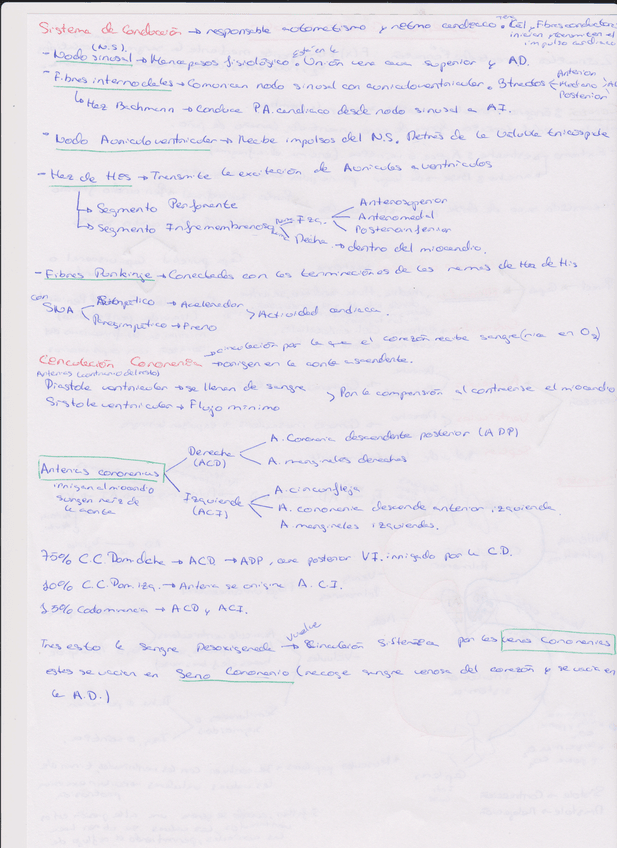 Sistema de Conducción → responsable automatismo y ritmo cardiaco. Cel, Fibras conductoras
inician y transmiten el impulso cardiaco
(N.S.) está en la
- Nodo sinusal → Marcapasos fisiológico. Unión vena cava superior y AD.
- Fibras internodales → Comunican nodo sinusal con auriculoventricular. 3 tractos Anterior
Medio
Posterior
↳ Haz Bachmann → Conduce P.A. cardiaco desde nodo sinusal a A.I.
- Nodo Auriculoventricular → Recibe impulsos del N.S. Detrás de la válvula tricúspide
- Haz de His → Transmite la excitación de Aurículas a ventrículos
↳ Segmento Perforante
↳ Segmento Inframembranosa Rama Izq. Anterosuperior
Anteromedial
Posteroinferior
Rama Decha. → dentro del miocardio.
- Fibras Purkinje → Conectadas con las terminaciones de las ramas de Haz de His
con
SNA Simpático → Acelerador
Parasimpático → Freno
> Actividad cardiaca.
Circulación Coronaria → circulación por la que el corazón recibe sangre (rica en O₂)
→ origen en la aorta ascendente.
Arterias (contrario del resto)
Diástole ventricular → se llenan de sangre
Sístole ventricular → Flujo mínimo
> Por la compresión al contraerse el miocardio
Arterias coronarias
irrigan al miocardio
surgen raíz de
la aorta
Derecha
(ACD)
A. Coronaria descendente posterior (ADP)
A. marginales derechas
Izquierda
(ACI)
A. circunfleja
A. coronaria descende anterior izquierda.
A marginales izquierdas.
75% C.C. Dom. dcha → ACD → ADP, cara posterior V.I. irrigado por la C.D.
10% C.C. Dom. izq. → Arteria se origina A.C.I.
15% Codominancia → ACD y ACI.
Tras esto la sangre Desoxigenada → vuelve Circulación Sistémica por las venas coronarias
estas se vacían en Seno Coronario (recoge sangre venosa del corazón y se vacía en
la A.D.)